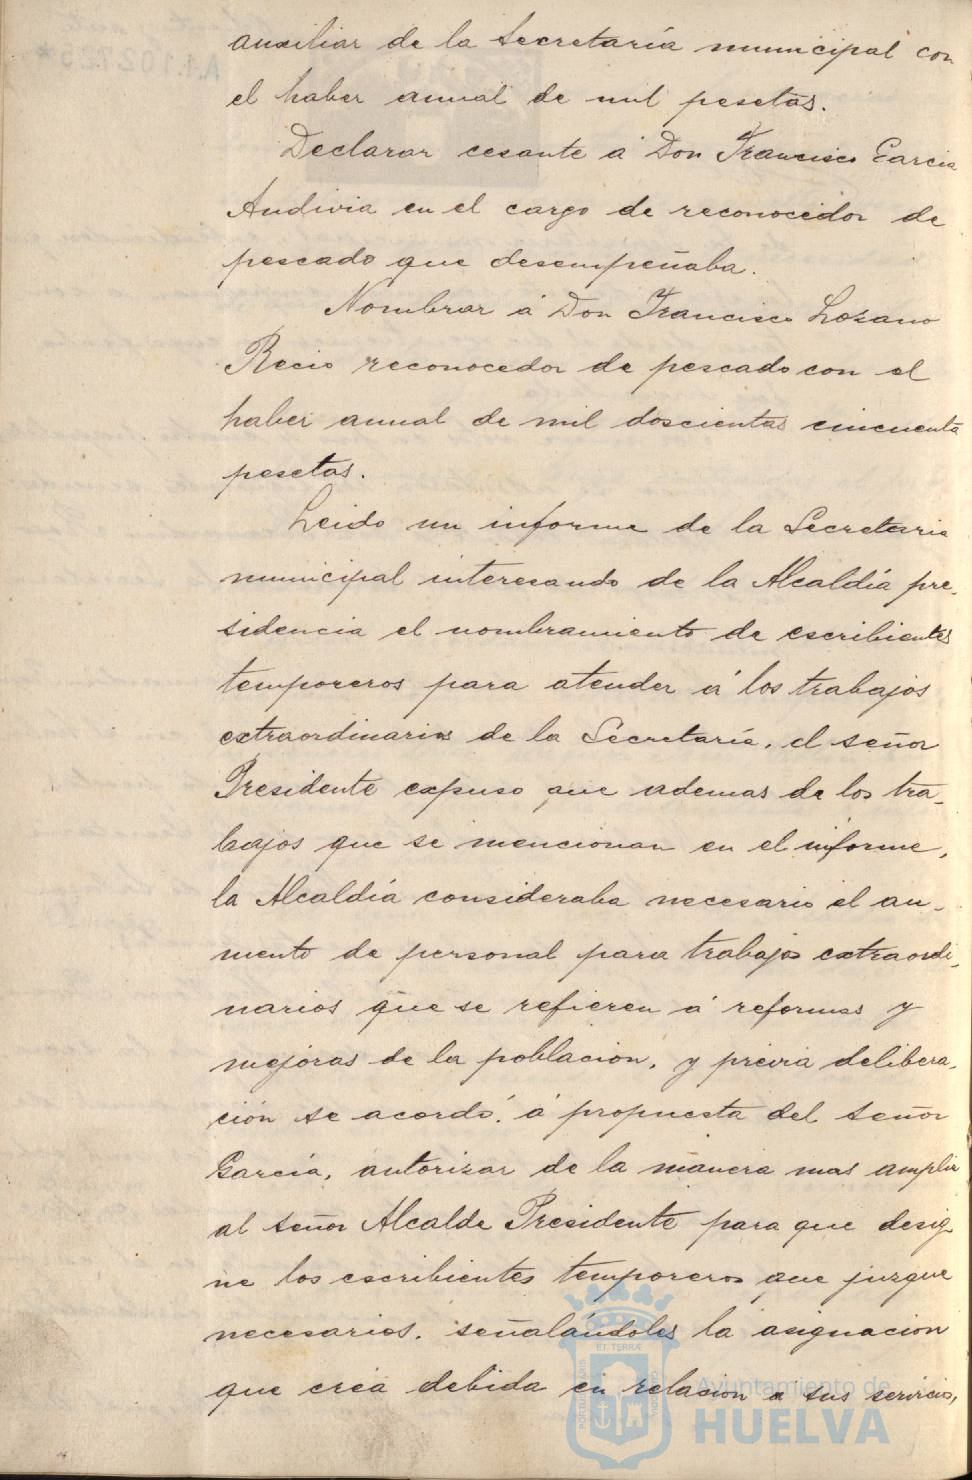 auxiliar de la Secretaría municipal con
el haber anual de mil pesetas.
Declarar cesante á Don Francisco Garcia
Andivia en el cargo de reconocedor de
pescado que desempeñaba.
Nombrar á Don Francisco Lozano
Recio reconocedor de pescado con el
haber anual de mil doscientas cincuenta
pesetas.
Leido un informe de la Secretaria
municipal interesando de la Alcaldía pre-
sidencia el nombramiento de escribientes
temporeros para atender á los trabajos
extraordinarios de la Secretaría, el señor
Presidente expuso que ademas de los tra-
bajos que se mencionan en el informe,
la Alcaldía consideraba necesario el au-
mento de personal para trabajos extraordi-
narios que se refieren á reformas y
mejoras de la población, y previa delibera-
ción se acordó, á propuesta del señor
García, autorizar de la manera mas amplia
al señor Alcalde Presidente para que desig
ne los escribientes temporeros que juzgue
necesarios, señalándoles la asignacion
que crea debida en relacion á sus servicios,
Ayuntamiento de
HUELVA